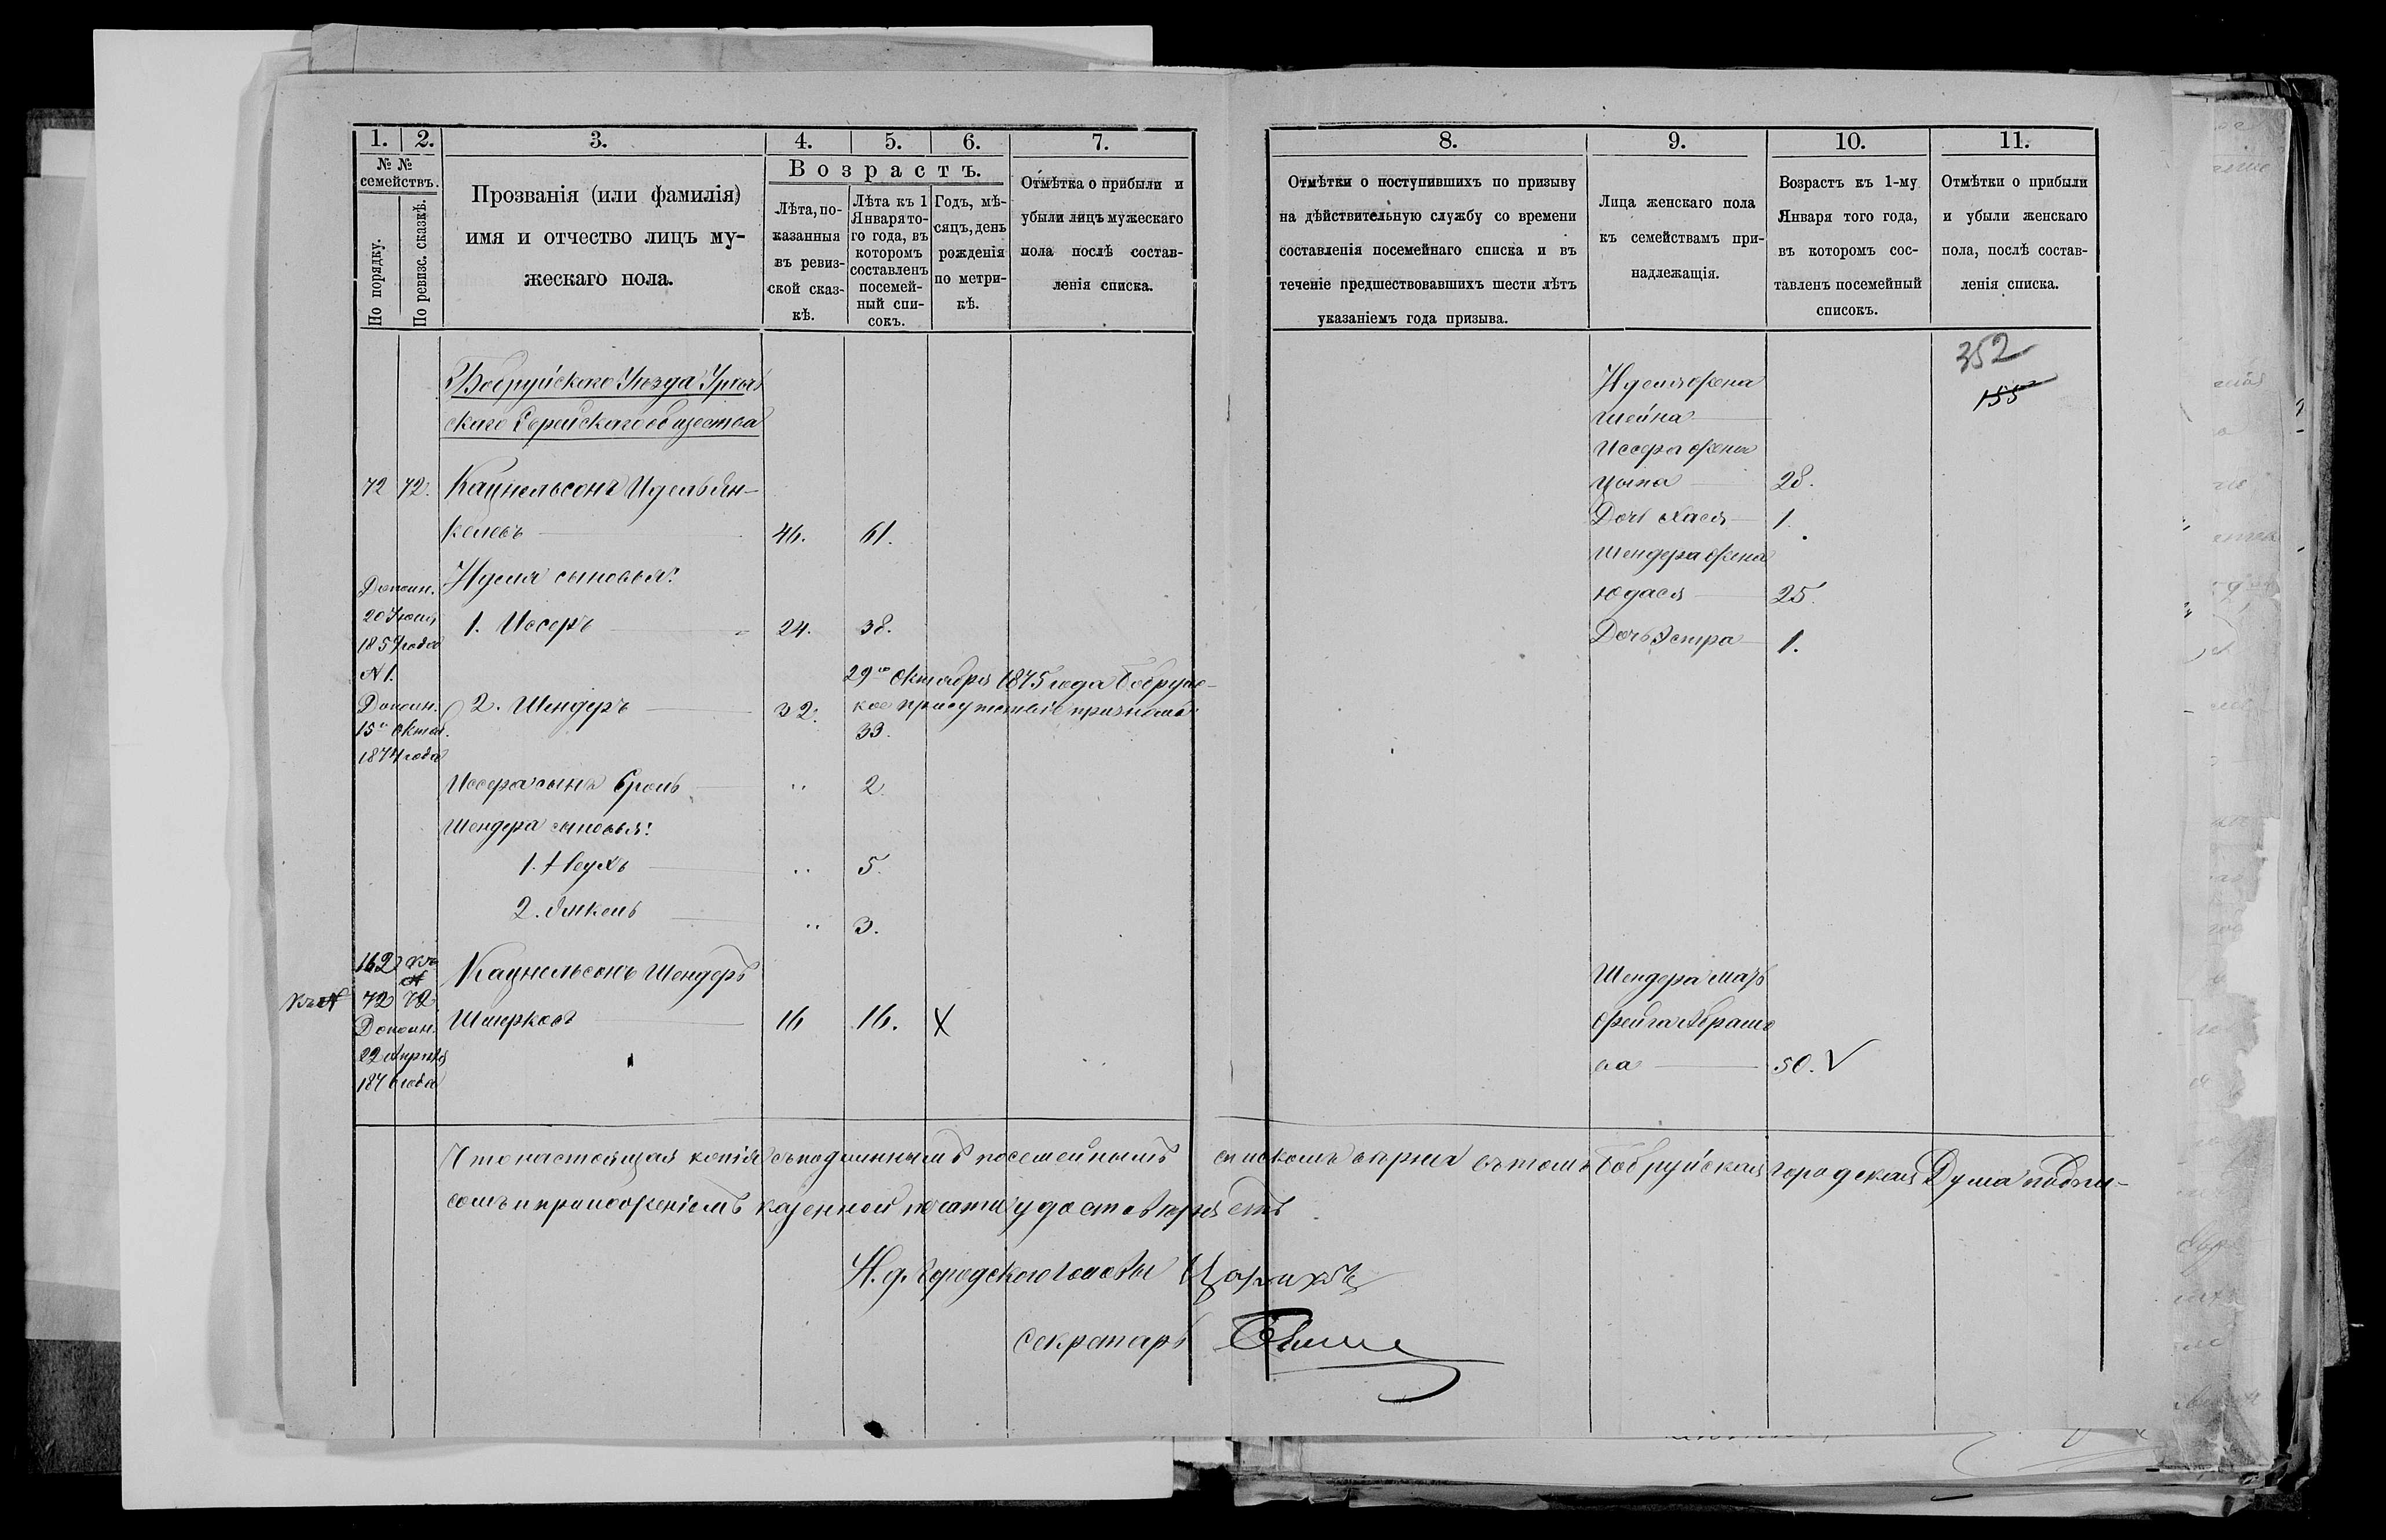 1. 2. 3. 4. 5. 6. 7.
№ №
семействъ.
По порядку.
По ревизс. сказкѣ.
Прозванія (или фамилія)
имя и отчество лицъ му-
жескаго пола.
Возрастъ.
Лѣта, по-
казанныя
въ ревиз-
ской сказ-
кѣ.
Лѣта къ 1
Января то-
го года, въ
которомъ
составленъ
посемей-
ный спи-
сокъ.
Годъ, мѣ-
сяцъ, день
рожденія
по метри-
кѣ.
Отмѣтка о прибыли и
убыли лицъ мужескаго
пола послѣ состав-
ленія списка.
Бобруйскаго Уѣзда
скаго Еврейскаго общества
72 72. Кацнельсонъ Нусель Ян-
келевъ 46. 61.
Нуселя сыновья:
Дополн.
20 Іюня
1857 года
№ 1.
1. Иссеръ 24. 38.
29го Октября 1875 года Бобруйс-
кое присутствіе признало:
Дополн.
15го Октяб.
1874 года
2. Шендеръ 32. 33.
Иссера сынъ 2.
Шендера сыновья:
1. 5.
2. Янкель 3.
162 къ №
къ № 72 72
Дополн.
22 Апрѣля
1876 года
Кацнельсонъ Шендеръ
Шмерковъ 16 16. X
8. 9. 10. 11.
Отмѣтки о поступившихъ по призыву
на дѣйствительную службу со времени
составленія посемейнаго списка и въ
теченіе предшествовавшихъ шести лѣтъ
указаніемъ года призыва.
Лица женскаго пола
къ семействамъ при-
надлежащія.
Возрастъ къ 1-му
Января того года,
въ которомъ сос-
тавленъ посемейный
списокъ.
Отмѣтки о прибыли
и убыли женскаго
пола, послѣ состав-
ленія списка.
352
155
Нуселя жена
Шейна
Иссера жена
Цыпа 28.
Дочь Хася 1.
Шендера жена
Юдася 25.
Дочь Эстра 1.
Шендера мать
Фрейга Абрамо
ва 50. V
Что настоящая копія съ подлиннымъ посемейнымъ спискомъ вѣрна въ томъ Бобруйская городская Дума подпи-
сомъ и приложеніемъ казенной печати удостовѣряетъ
И. д. Городскаго головы
Секретарь